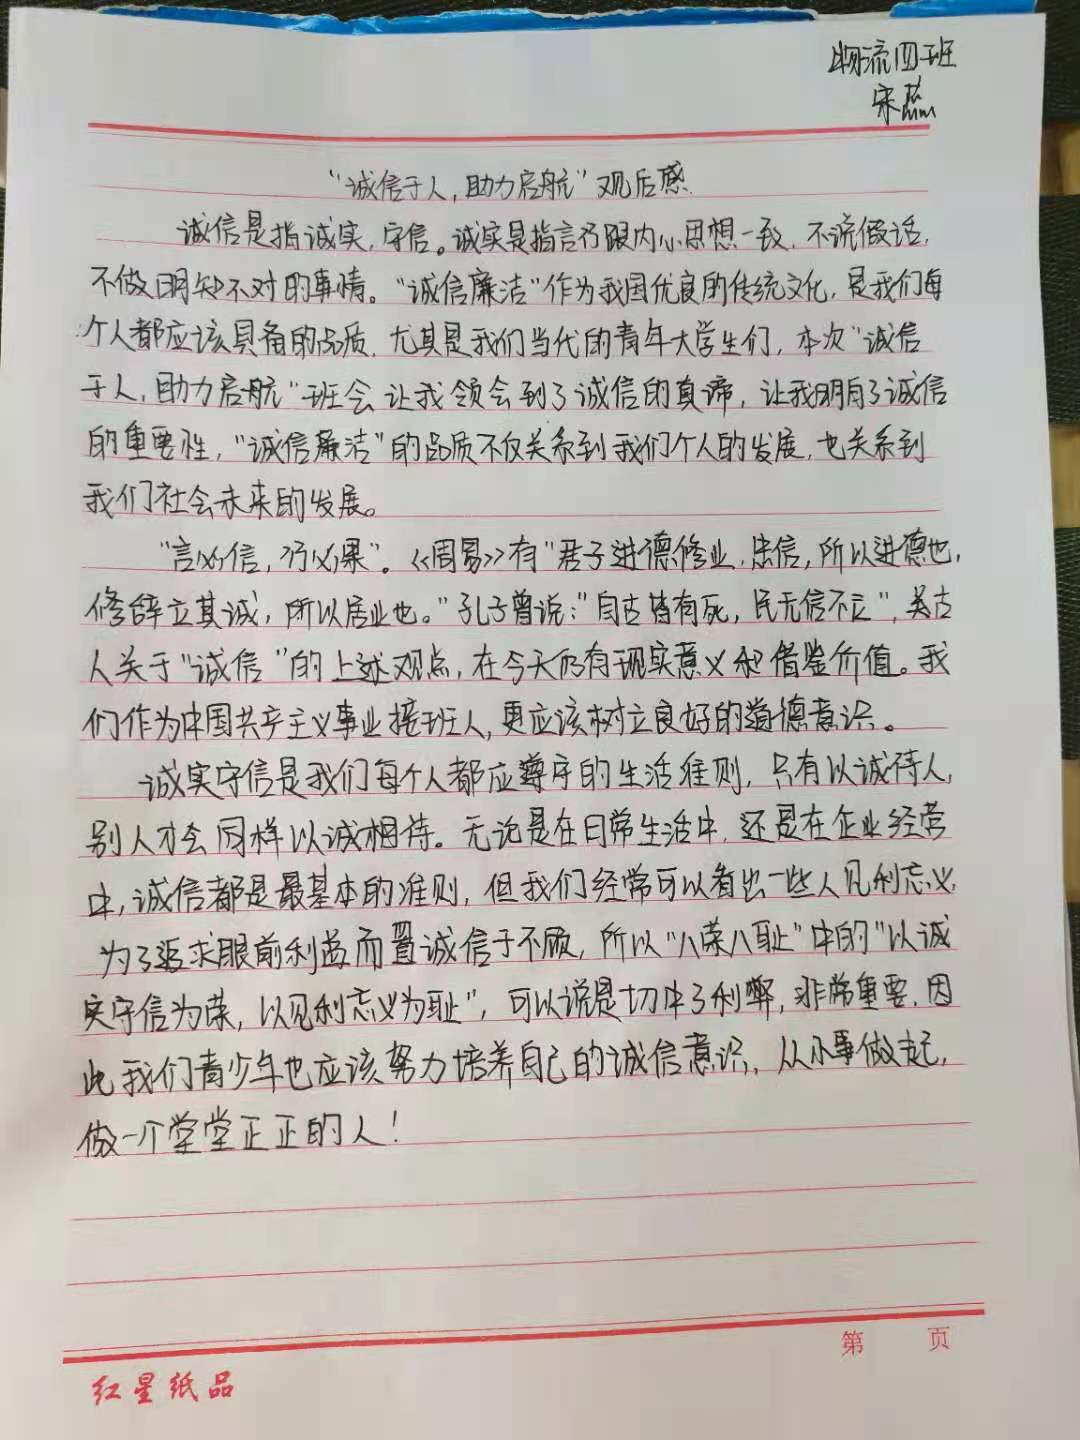 物流四班
宋蕊
“诚信于人,助力启航”观后感.
诚信是指诚实,守信。诚实是指言行跟内心思想一致,不说假话,
不做明知不对的事情。“诚信廉洁”作为我国优良的传统文化,是我们每
个人都应该具备的品质,尤其是我们当代的青年大学生们,本次“诚信
于人,助力启航”班会让我领会到了诚信的真谛,让我明白了诚信
的重要性,“诚信廉洁”的品质不仅关系到我们个人的发展,也关系到
我们社会未来的发展。
“言必信,行必果”。《周易》有“君子进德修业,忠信,所以进德也,
修辞立其诚,所以居业也。”孔子曾说:“自古皆有死,民无信不立”,古
人关于“诚信”的上述观点,在今天仍有现实意义和借鉴价值。我
们作为中国共产主义事业接班人,更应该树立良好的道德意识。
诚实守信是我们每个人都应遵守的生活准则,只有以诚待人,
别人才会同样以诚相待。无论是在日常生活中,还是在企业经营
中,诚信都是最基本的准则,但我们经常可以看出一些人见利忘义,
为了追求眼前利益而置诚信于不顾,所以“八荣八耻”中的“以诚
实守信为荣,以见利忘义为耻”,可以说是切中了利弊,非常重要,因
此我们青少年也应该努力培养自己的诚信意识,从小事做起,
做一个堂堂正正的人!
第 页
红星纸品